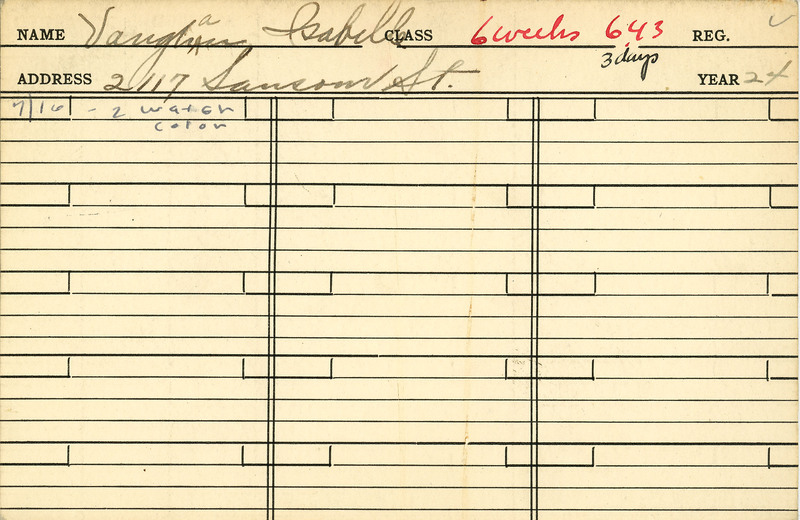 NAME Vaughan Isabell CLASS 6 weeks 643 REG. ✓
3 days
ADDRESS 2117 Sansom St. YEAR 24
7/16 - 2 water
color